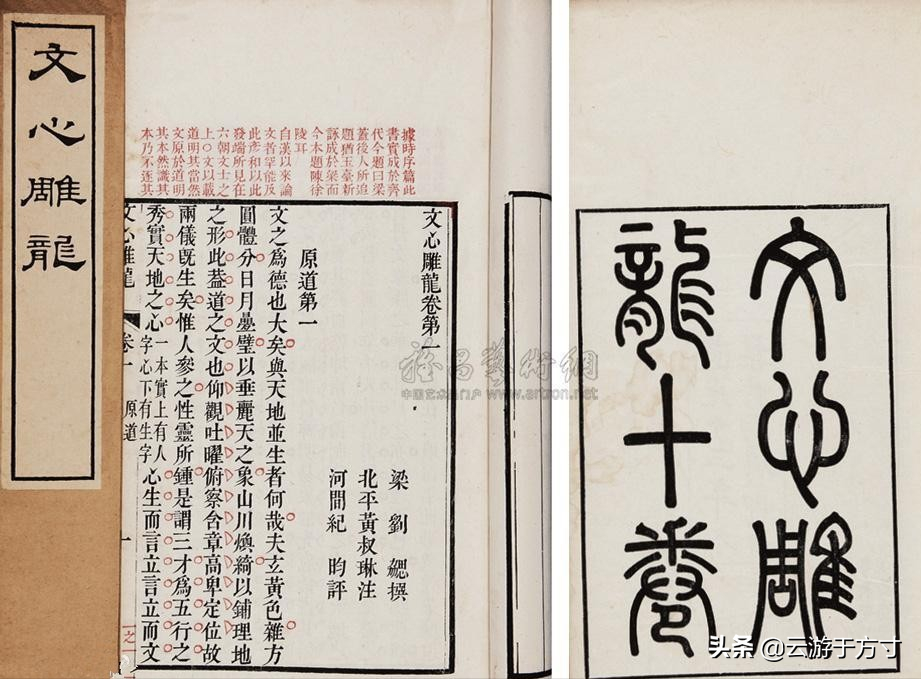 文心雕龍
據時序篇此
書實成於齊
代今題曰梁
蓋後人所追
題猶玉臺新
詠成於梁而
今本題陳徐
陵耳
自漢以來論
文者罕能及
此彥和以此
發端所見在
六朝文士之
上○文以載
道明其當然
文原於道明
其本然識其
本乃不逐其
文心雕龍卷第一
梁 劉 勰撰
北平黃叔琳注
河間紀 昀評
原道第一
文之爲德也大矣與天地並生者何哉夫玄黃色雜方
圓體分日月疊璧以垂麗天之象山川煥綺以鋪理地
之形此葢道之文也仰觀吐曜俯察含章高卑定位故
兩儀旣生矣惟人參之性靈所鍾是謂三才爲五行之
秀實天地之心一本實上有人字心下有生字心生而言立言立而文
文心雕龍 卷一 原道 一
文心雕
龍十卷
雅昌藝術網
中国艺术品门户 www.artron.net
头条 @云游于方寸